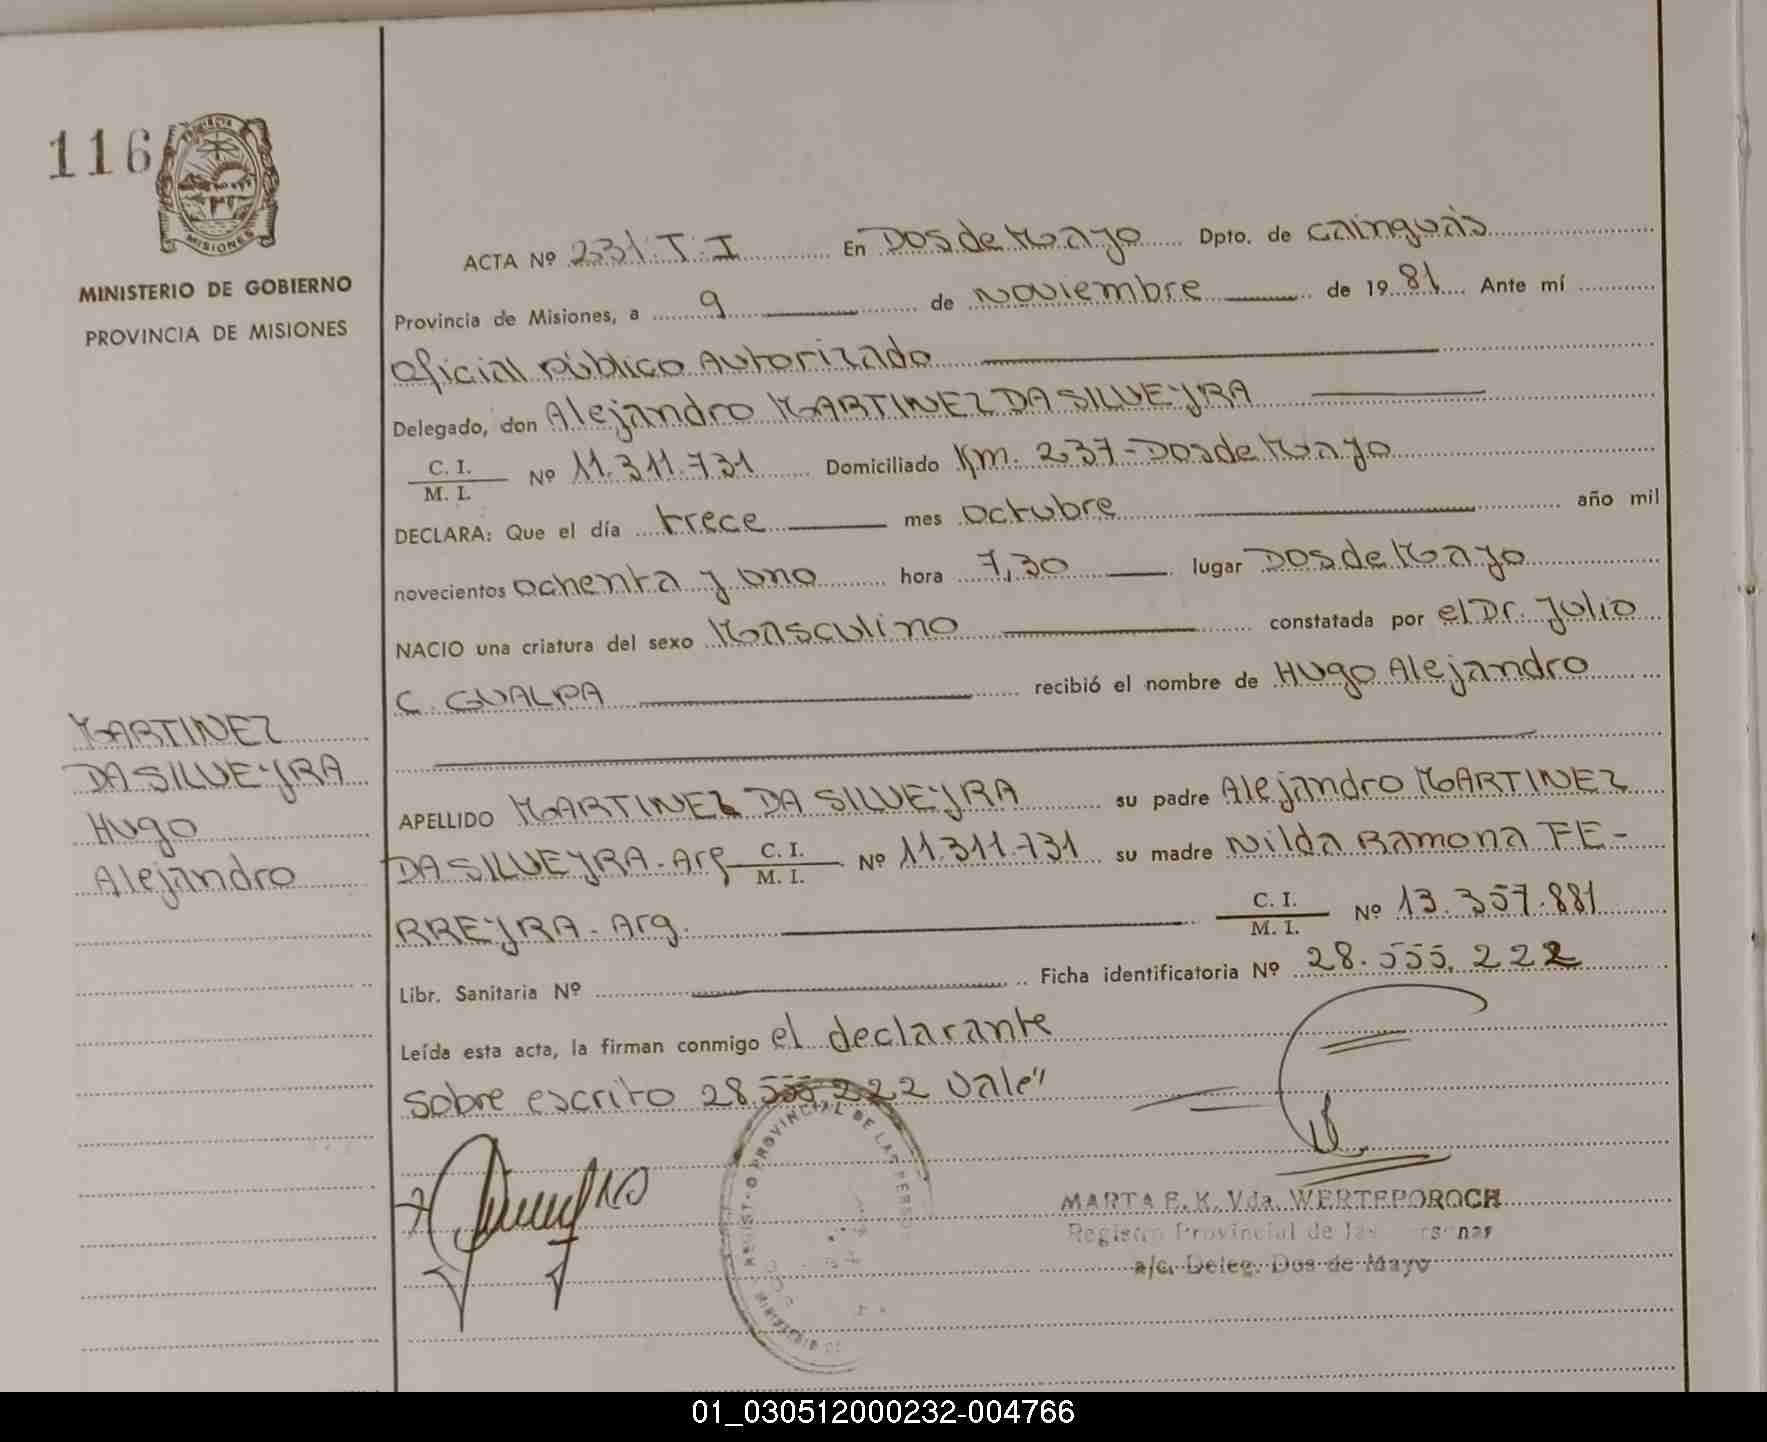 116
PROVINCIA
MISIONES
MINISTERIO DE GOBIERNO
PROVINCIA DE MISIONES
MARTINEZ
DA SILVEYRA
Hugo
Alejandro
ACTA Nº 231 T. I En Dos de Mayo Dpto. de Cainguás
Provincia de Misiones, a 9 de Noviembre de 1981 Ante mí
Oficial Público Autorizado
Delegado, don Alejandro MARTINEZ DA SILVEYRA
C. I.
M. I. Nº 11.311.731 Domiciliado Km. 237 - Dos de Mayo
DECLARA: Que el día trece mes octubre año mil
novecientos ochenta y uno hora 7,30 lugar Dos de Mayo
NACIO una criatura del sexo Masculino constatada por el Dr. Julio
C. GUALPA recibió el nombre de Hugo Alejandro
APELLIDO MARTINEZ DA SILVEYRA su padre Alejandro MARTINEZ
DA SILVEYRA - Arg C. I. M. I. Nº 11.311.731 su madre Nilda Ramona FE-
RREYRA - Arg. C. I. M. I. Nº 13.357.881
Libr. Sanitaria Nº Ficha identificatoria Nº 28.555.222
Leída esta acta, la firman conmigo el declarante
Sobre escrito 28.555.222 Vale"
PROVINCIAL DE LAS
MARTA E. K. Vda. WERTEPOROCH
Registro Provincial de las
a/c. Deleg. Dos de Mayo
01_030512000232-004766